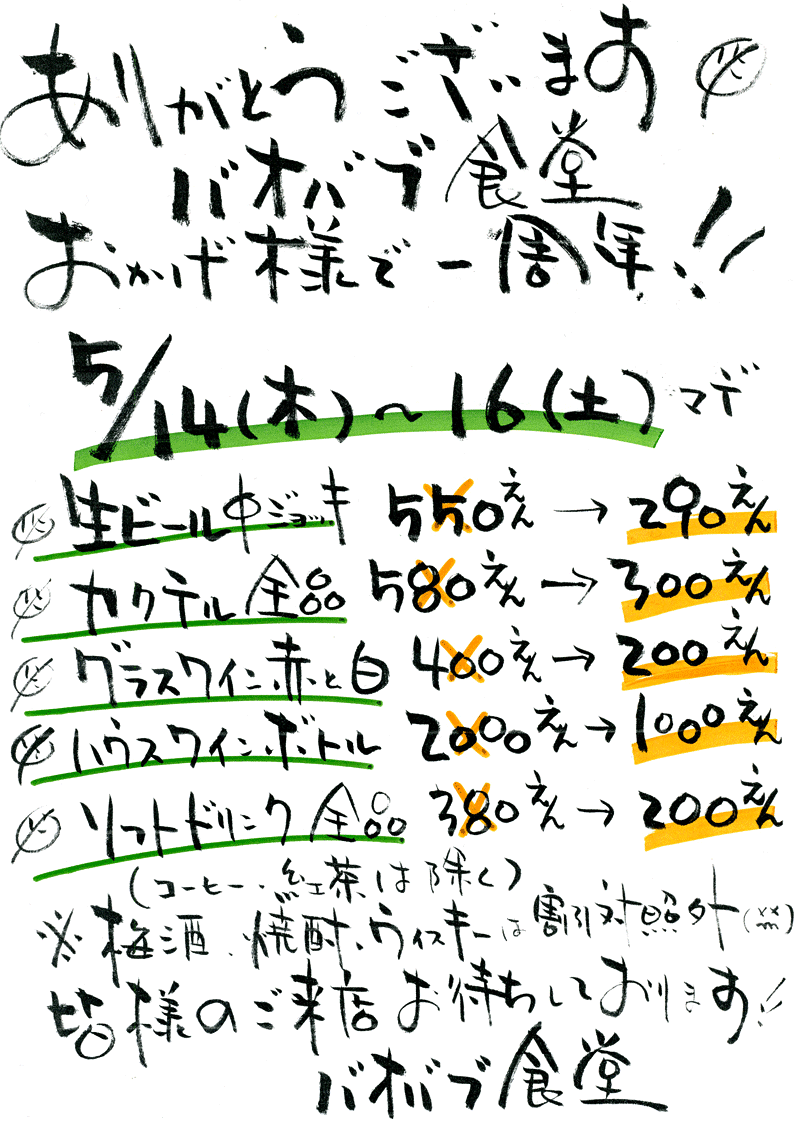 ありがとうございます
バオバブ食堂
おかげ様で一周年!!
5/14(木)~16(土)マデ
生ビール中ジョッキ 550えん→290えん
カクテル全品 580えん→300えん
グラスワイン赤と白 400えん→200えん
ハウスワインボトル 2000えん→1000えん
ソフトドリンク全品 380えん→200えん
(コーヒー・紅茶は除く)
※梅酒、焼酎、ウィスキーは割引対照外(××)
皆様のご来店お待ちしております!!
バオバブ食堂